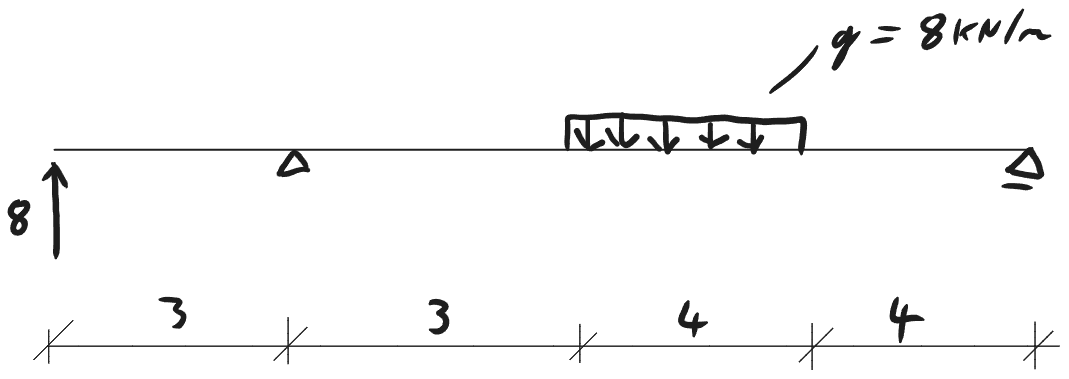 q = 8 kN/m
8
3 3 4 4